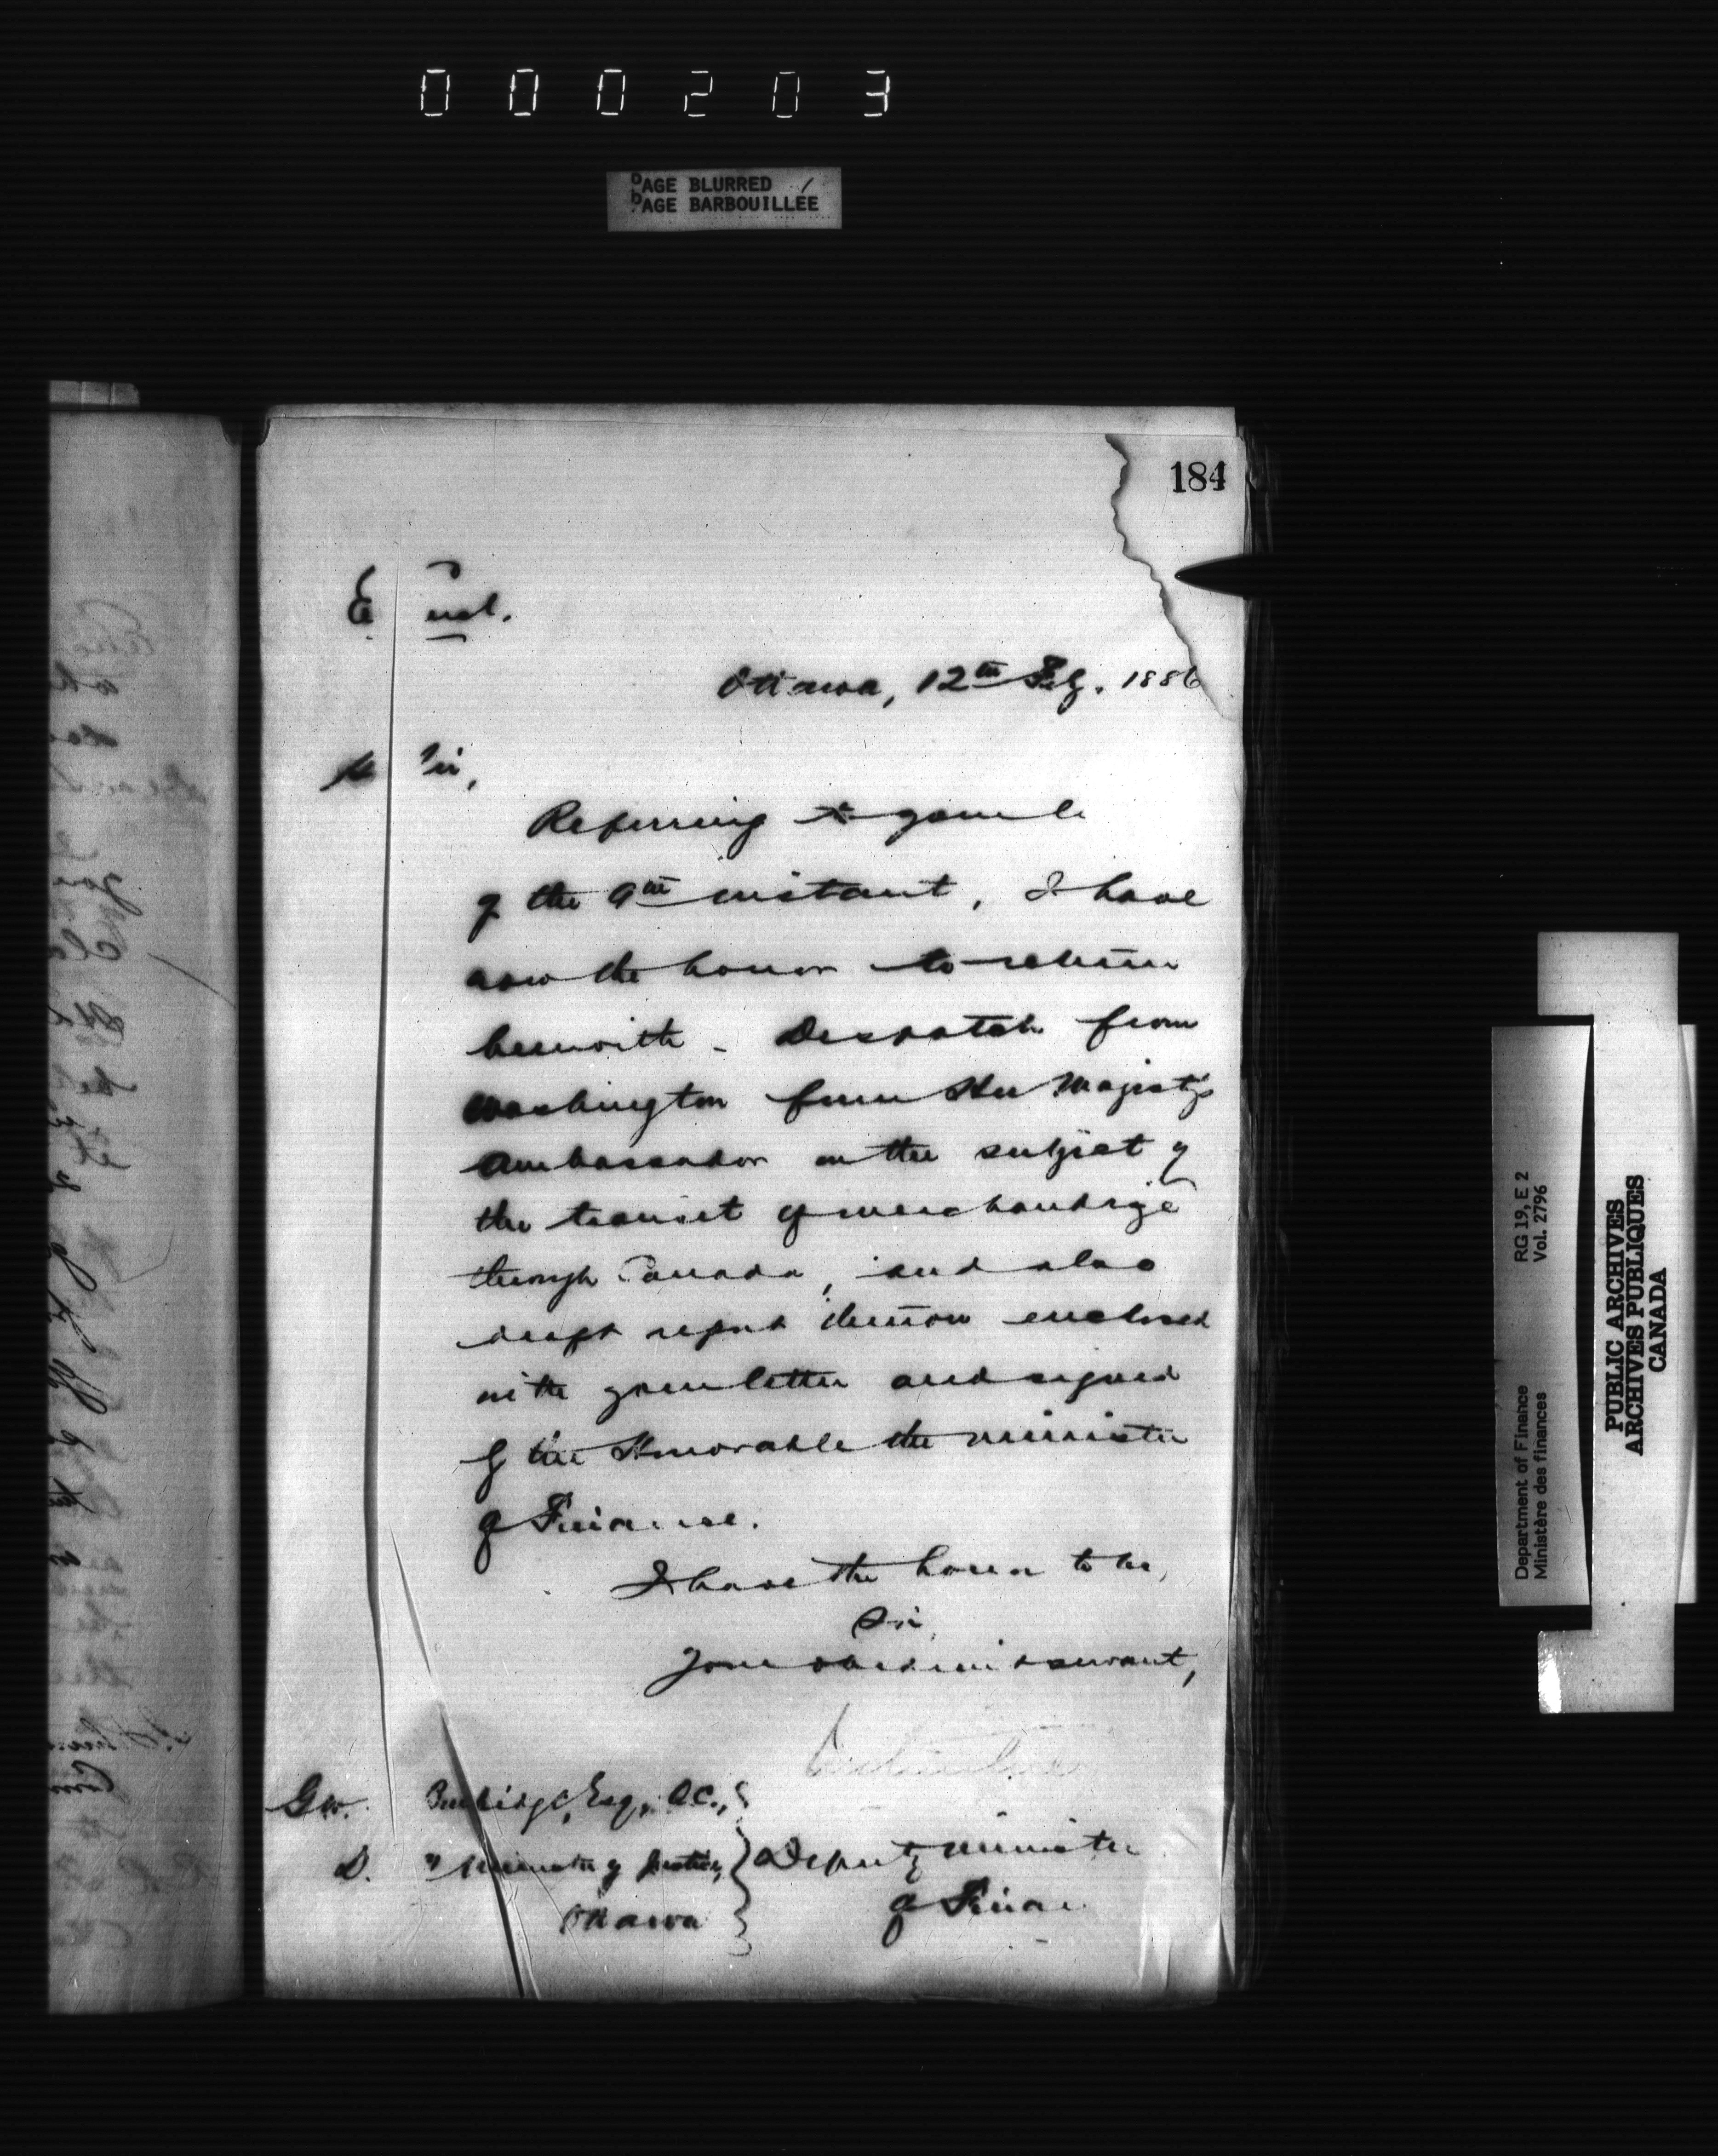 000203
PAGE BLURRED
PAGE BARBOUILLÉE
184
Encl.
Ottawa, 12th Feby. 1886
Sir,
Referring to your le
of the 9th instant, I have
now the honor to return
herewith - Despatch from
Washington from Her Majesty's
Ambassador on the subject of
the transit of merchandize
through Canada, and also
draft report thereon enclosed
with your letter and signed
by the Honorable the Minister
of Finance.
I have the honor to be,
Sir,
Your obedient servant,
Geo. Burbidge, Esq, Q.C.,
D. " Minister of Justice,
Ottawa
Deputy Minister
of Finan
RG 19, E 2
Vol. 2796
Department of Finance
Ministère des finances
PUBLIC ARCHIVES
ARCHIVES PUBLIQUES
CANADA